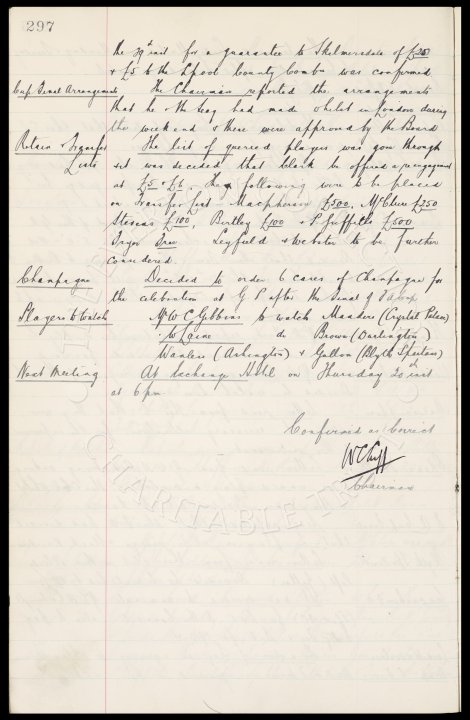 297
the 29th inst for a guarantee to Skelmersdale of £20
& £5 to the Lpool County Comb was confirmed
Cup Final Arrangements The Chairman reported the arrangements
that he & the Secy had made whilst in London during
the weekend & these were approved by the Board
Retain & Transfer The list of queried players was gone through
Lists & it was decided that Clark be offered a reengagement
at £5 & £6. The following were to be placed
on Transfer List Macpherson £500, McClure £250
Stevens £100, Birtley £100 & P. Griffiths £500
Free Leyfield & Webster to be further
considered
Champagne Decided to order 6 cases of Champagne for
the celebration at G P after the Final of
Players to watch Mr W C Gibbins to watch Manders (Crystal Palace)
W Laine do Brown (Darlington)
(Ashington) & (Blyth Spartans)
Next Meeting At Exchange Hotel on Thursday 20th inst
at 6 pm
Confirmed as Correct
W C Cuff
Chairman
CHARITABLE TR